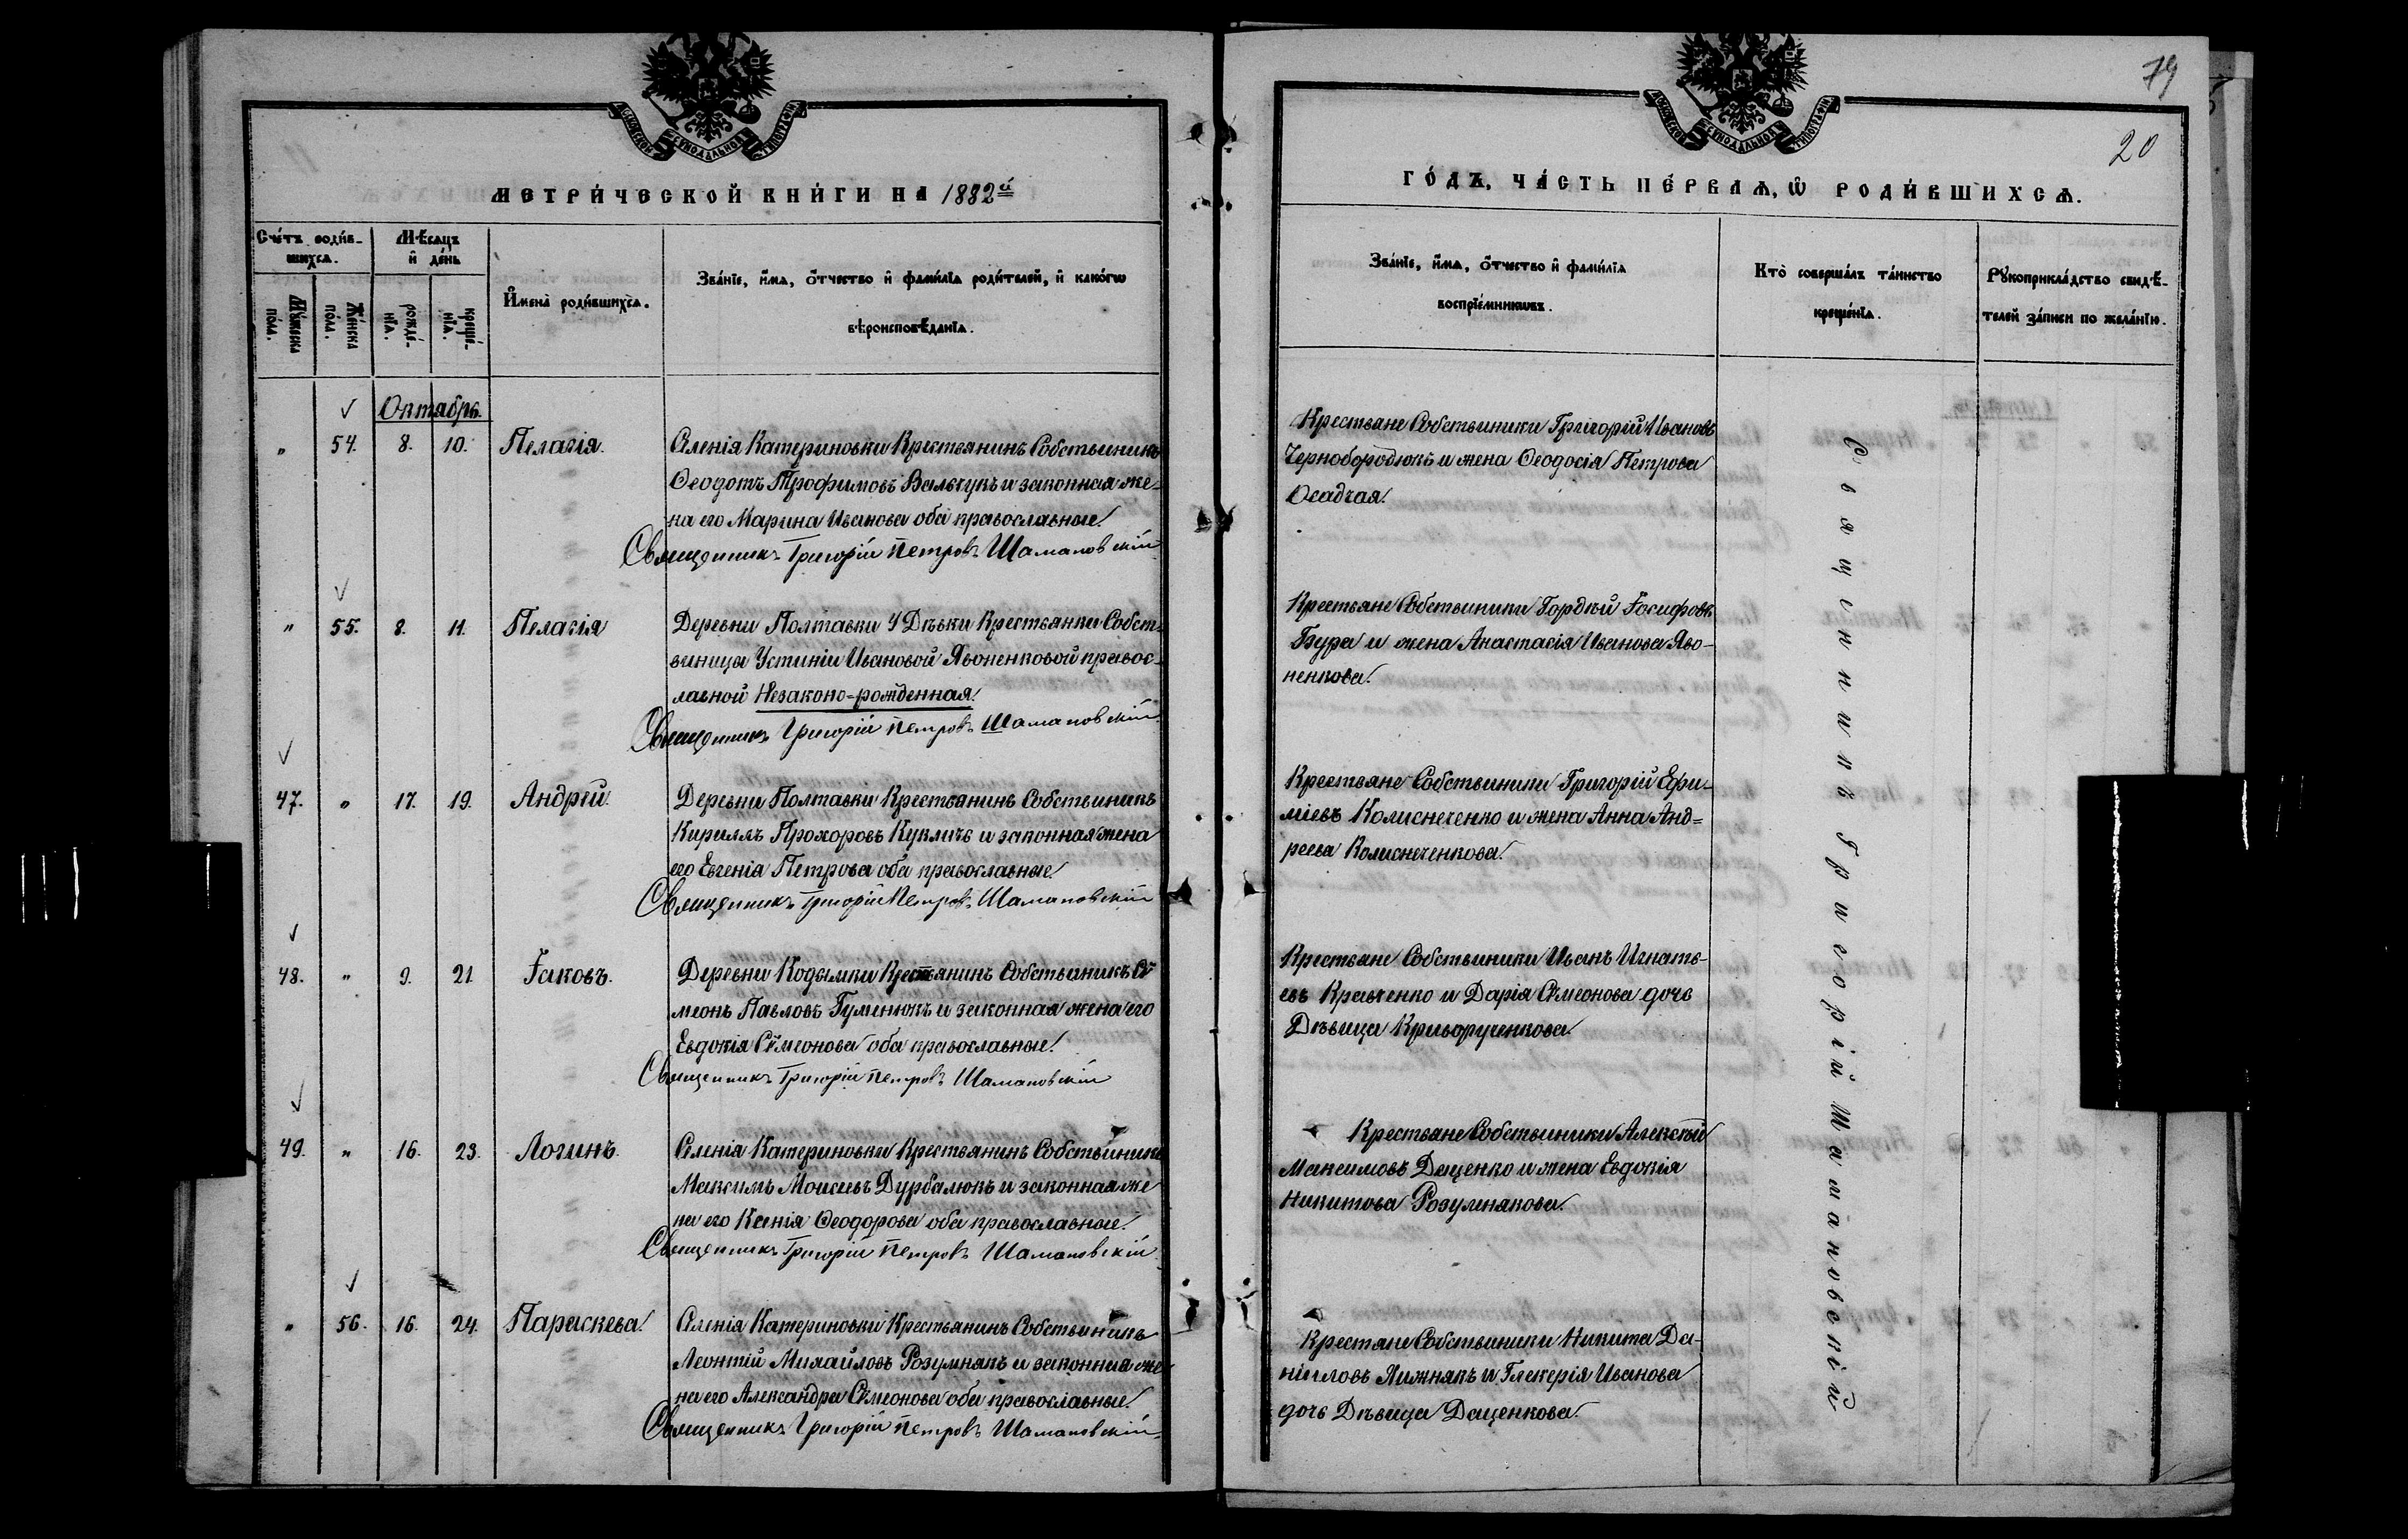 МОСКОВСКОЙ СѴНОДАЛЬНОЙ ТИПОГРАФІИ
МЕТРИ́ЧЕСКОЙ КНИ́ГИ НА 1882й
Сче́тъ роди́в-
шихсѧ.
Мꙋ́жеска по́ла.
Же́нска по́ла.
Мѣ́сѧцъ и҆ де́нь
рожде́-нїѧ.
креще́-нїѧ.
И҆мена̀ роди́вшихсѧ.
Зва́нїе, и҆́мѧ, ѻ҆́тчество и҆ фами́лїѧ роди́телей, и҆ како́гѡ
вѣроисповѣ́данїѧ.
Октябрь.
" 54. 8. 10. Пелагія. Селенія Катериновки Крестьянинъ Собственникъ
Ѳеодотъ Трофимовъ Вальчукъ и законная же-
на его Марина Иванова оба православные.
Священникъ Григорій Петровъ Шамановскій
" 55. 8. 11. Пелагія Деревни Полтавки у Дѣвки Крестьянки Собст-
венницы Устиніи Ивановой Явоненковой правос-
лавной Незаконо-рожденная.
Священникъ Григорій Петровъ Шамановскій
47. " 17. 19. Андрей. Деревни Полтавки Крестьянинъ Собственникъ
Кириллъ Прохоровъ Кукличъ и законная жена
его Евгенія Петрова оба православные.
Священникъ Григорій Петровъ Шамановскій
48. " 9. 21. Іаковъ. Деревни Кодымки Крестьянинъ Собственникъ Сѵ
меонъ Павловъ Гуменюкъ и законная жена его
Евдокія Сѵмеонова оба православные.
Священникъ Григорій Петровъ Шамановскій
49. " 16. 23. Логинъ. Селенія Катериновки Крестьянинъ Собственникъ
Максимъ Моисеевъ Дурбалюкъ и законная же
на его Ксенія Ѳеодорова оба православные.
Священникъ Григорій Петровъ Шамановскій
" 56. 16. 24. Параскева. Селенія Катериновки Крестьянинъ Собственникъ
Леонтій Михайловъ Розумнякъ и законная же
на его Александра Сѵмеонова оба православные.
Священникъ Григорій Петровъ Шамановскій
79
20
МОСКОВСКОЙ СѴНОДАЛЬНОЙ ТИПОГРАФІИ
ГО́ДЪ, ЧА́СТЬ ПЕ́РВАѦ, Ѡ҆ РОДИ́ВШИХСѦ.
Зва́нїе, и҆́мѧ, ѻ҆́тчество и҆ фами́лїѧ
воспрїе́мникѡвъ.
Кто̀ соверша́лъ та́инство
креще́нїѧ.
Рꙋкоприкла́дство свидѣ́-
телей за́писи по жела́нїю.
Крестьяне Собственники Григорій Ивановъ
Чернобородюкъ и жена Ѳеодосія Петрова
Осадчая.
Крестьяне Собственники Гордѣй Іосифовъ
Бура и жена Анастасія Иванова Яво-
ненкова.
Крестьяне Собственники Григорій Ефи-
міевъ Колиснеченко и жена Анна Анд-
реева Колиснеченкова.
Крестьяне Собственники Иванъ Игнать-
евъ Кравченко и Дарія Сѵмеонова дочь
Дѣвица Криворученкова.
Крестьяне Собственники Алексѣй
Максимовъ Даценко и жена Евдокія
Никитова Розумнякова.
Крестяне Собственники Никита Да-
ніиловъ Хижнякъ и Гликерія Иванова
дочь Дѣвица Даценкова.
Священникъ Григорій Шамановскій